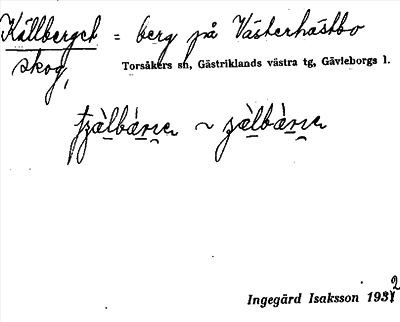 Källberget = berg på Västerhästbo
skog,
Torsåkers sn, Gästriklands västra tg, Gävleborgs l.
Ingegärd Isaksson 1932